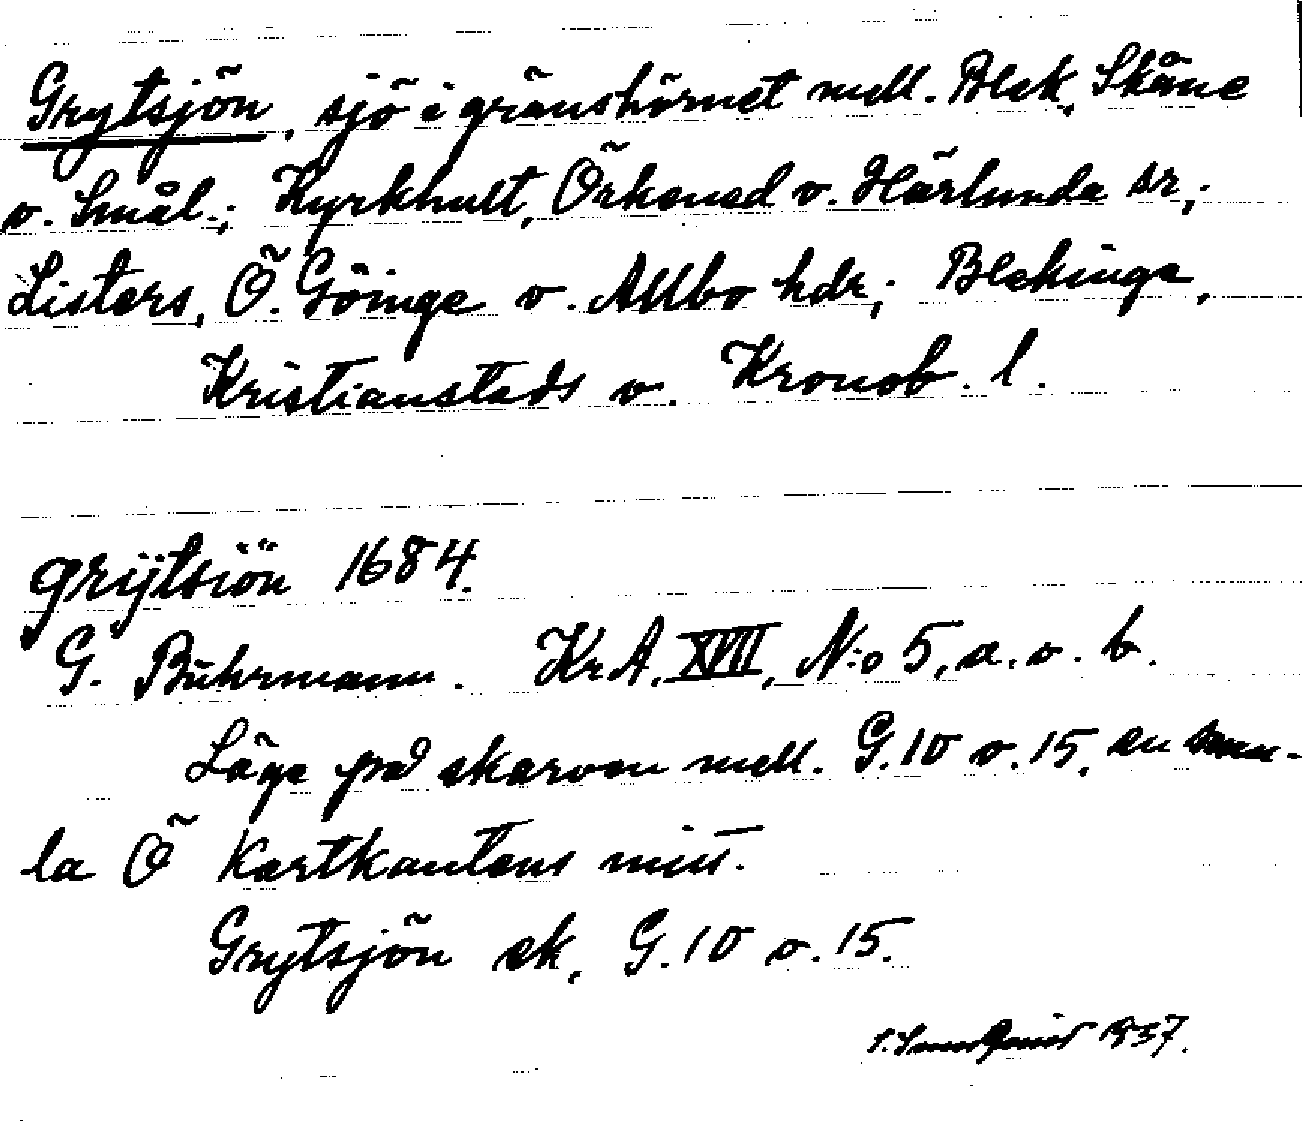 Grytsjön, sjö i gränshörnet mell. Blek., Skåne
o. Smål.; Kyrkhult, Örkened o. Härlunda sr,;
Listers, Ö. Göinge o. Allbo hdr,; Blekinge,
Kristianstads o. Kronob. l.
grÿtsiön 1684.
G. Buhrmann. KrA. XVII, N:o 5, a. o. b.
Läge på skarven mell. G.10 o. 15, en smu-
la Ö kartkantens mitt.
Grytsjön ek. G.10 o. 15.
1937.